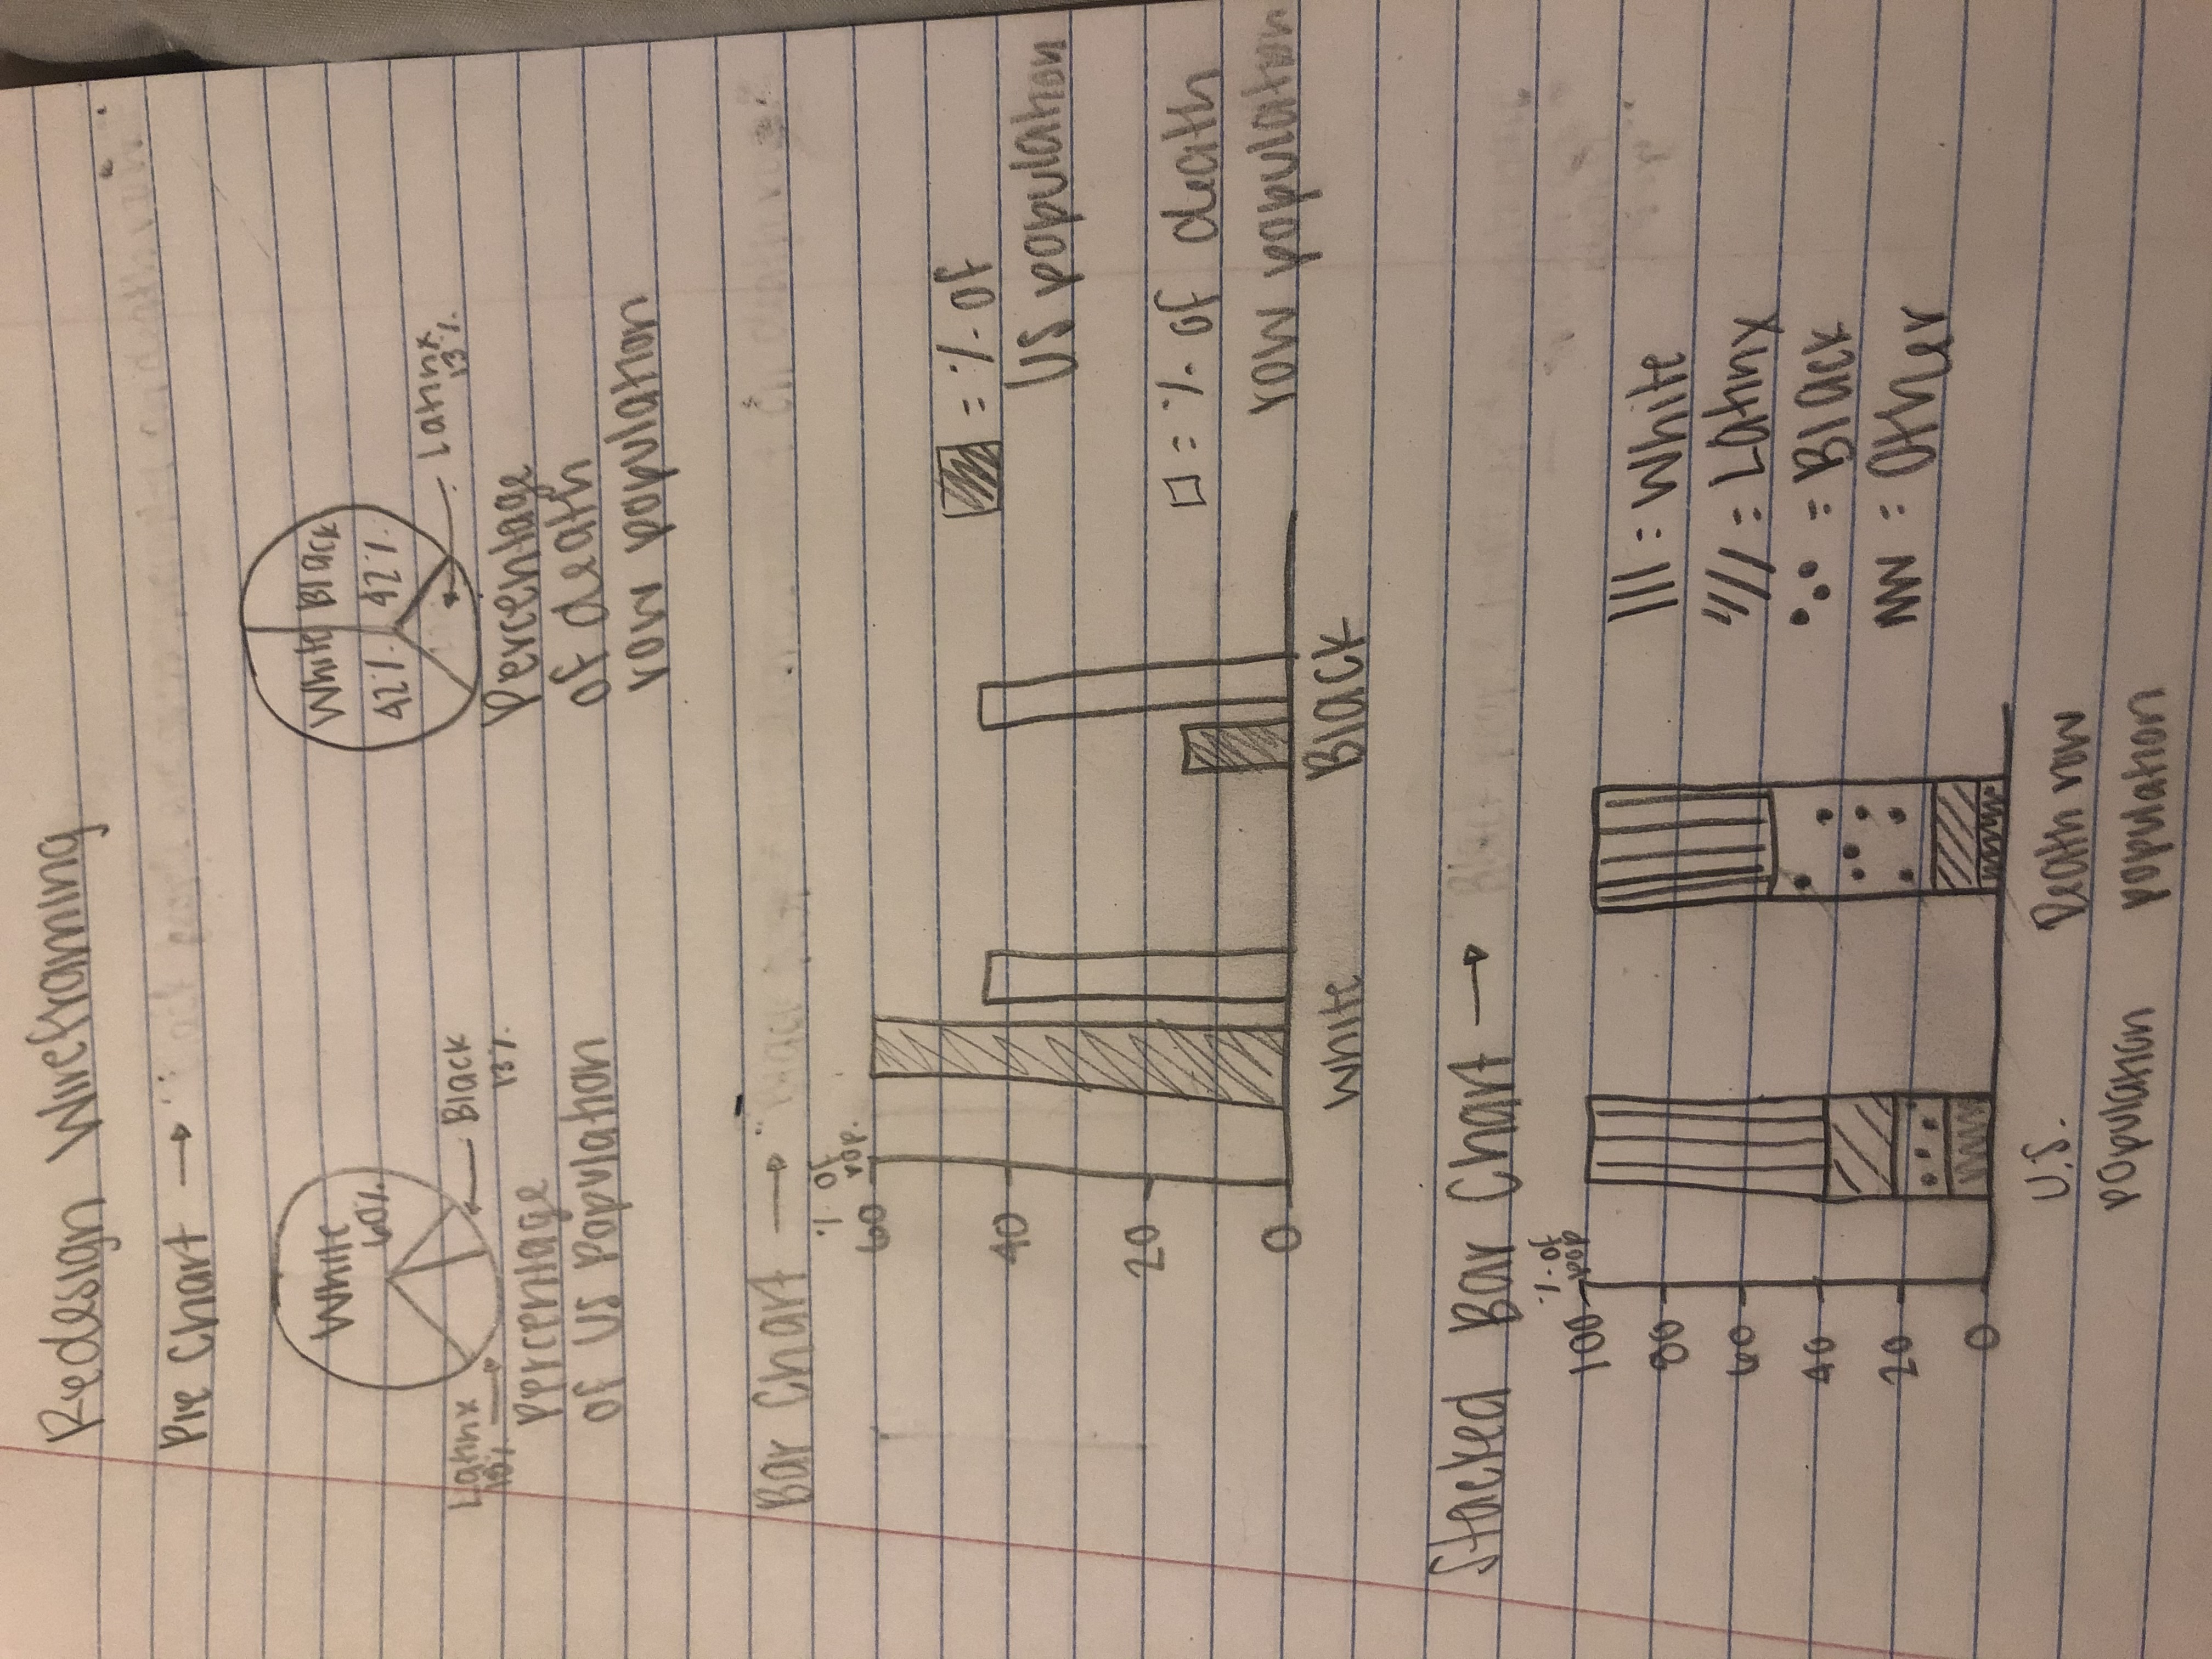 Redesign Wireframing
Pie Chart →
White
60%
Latinx
18%
Black
13%
Percentage
of US Population
White Black
42% 42%
Latinx
13%
Percentage
of death
row population
Bar Chart →
% of
pop.
60
40
20
0
White Black
= % of
US population
= % of death
row population
Stacked Bar Chart →
% of
pop
100
80
60
40
20
0
U.S.
population
Death row
population
= White
= Latinx
= Black
= Other